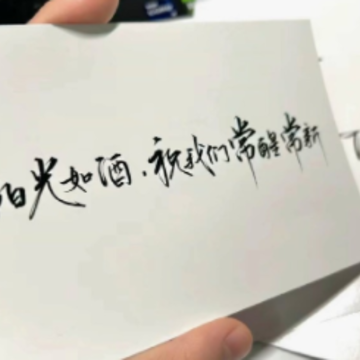 阳光如酒.祝我们常醒常新